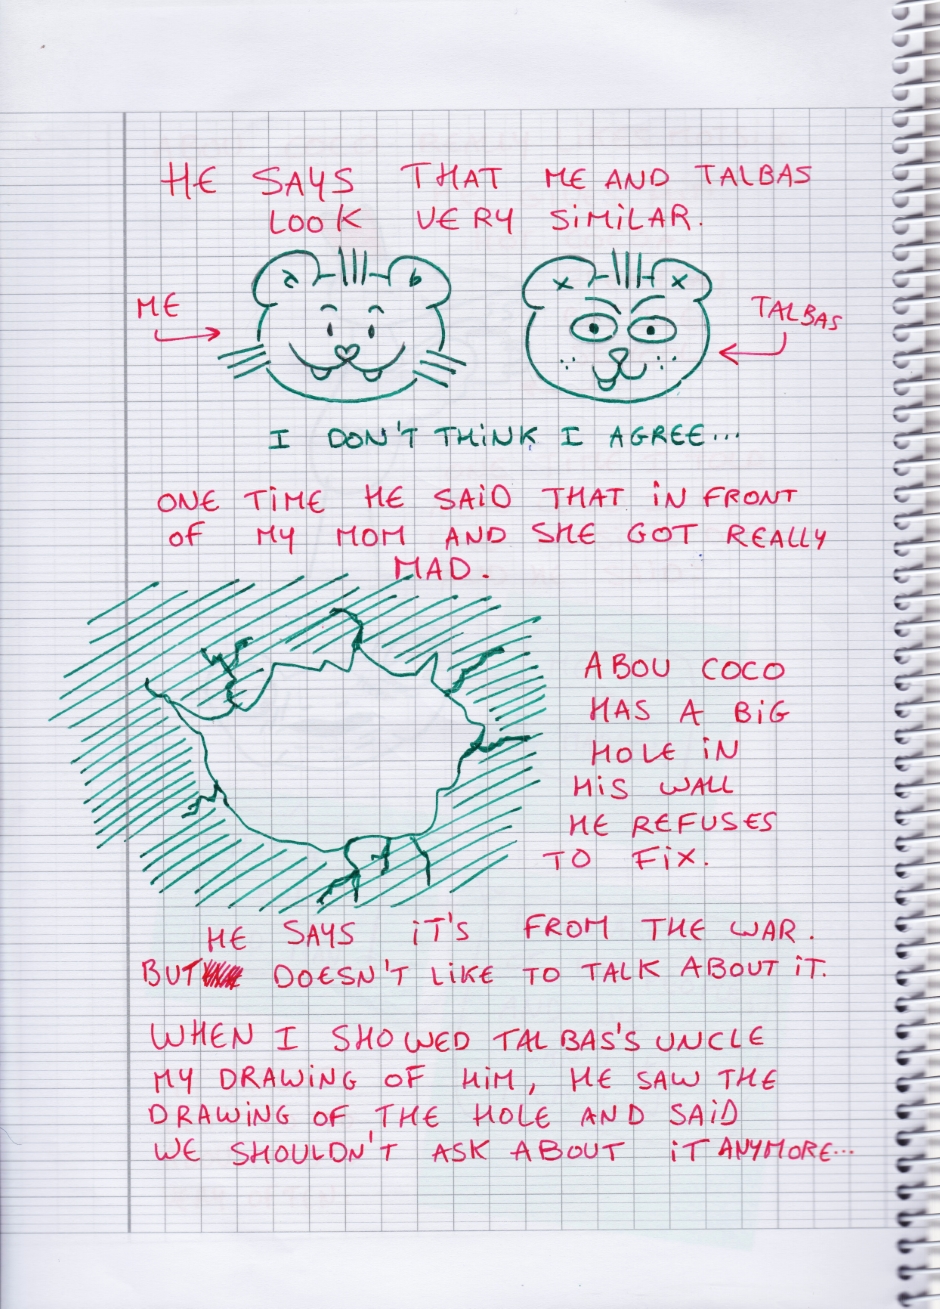 HE SAYS THAT ME AND TALBAS
LOOK VERY SIMILAR.
ME
TALBAS
I DON'T THINK I AGREE...
ONE TIME HE SAID THAT IN FRONT
OF MY MOM AND SHE GOT REALLY
MAD.
ABOU COCO
HAS A BIG
HOLE IN
HIS WALL
HE REFUSES
TO FIX.
HE SAYS IT'S FROM THE WAR.
BUT DOESN'T LIKE TO TALK ABOUT IT.
WHEN I SHOWED TALBAS'S UNCLE
MY DRAWING OF HIM, HE SAW THE
DRAWING OF THE HOLE AND SAID
WE SHOULDN'T ASK ABOUT IT ANYMORE...